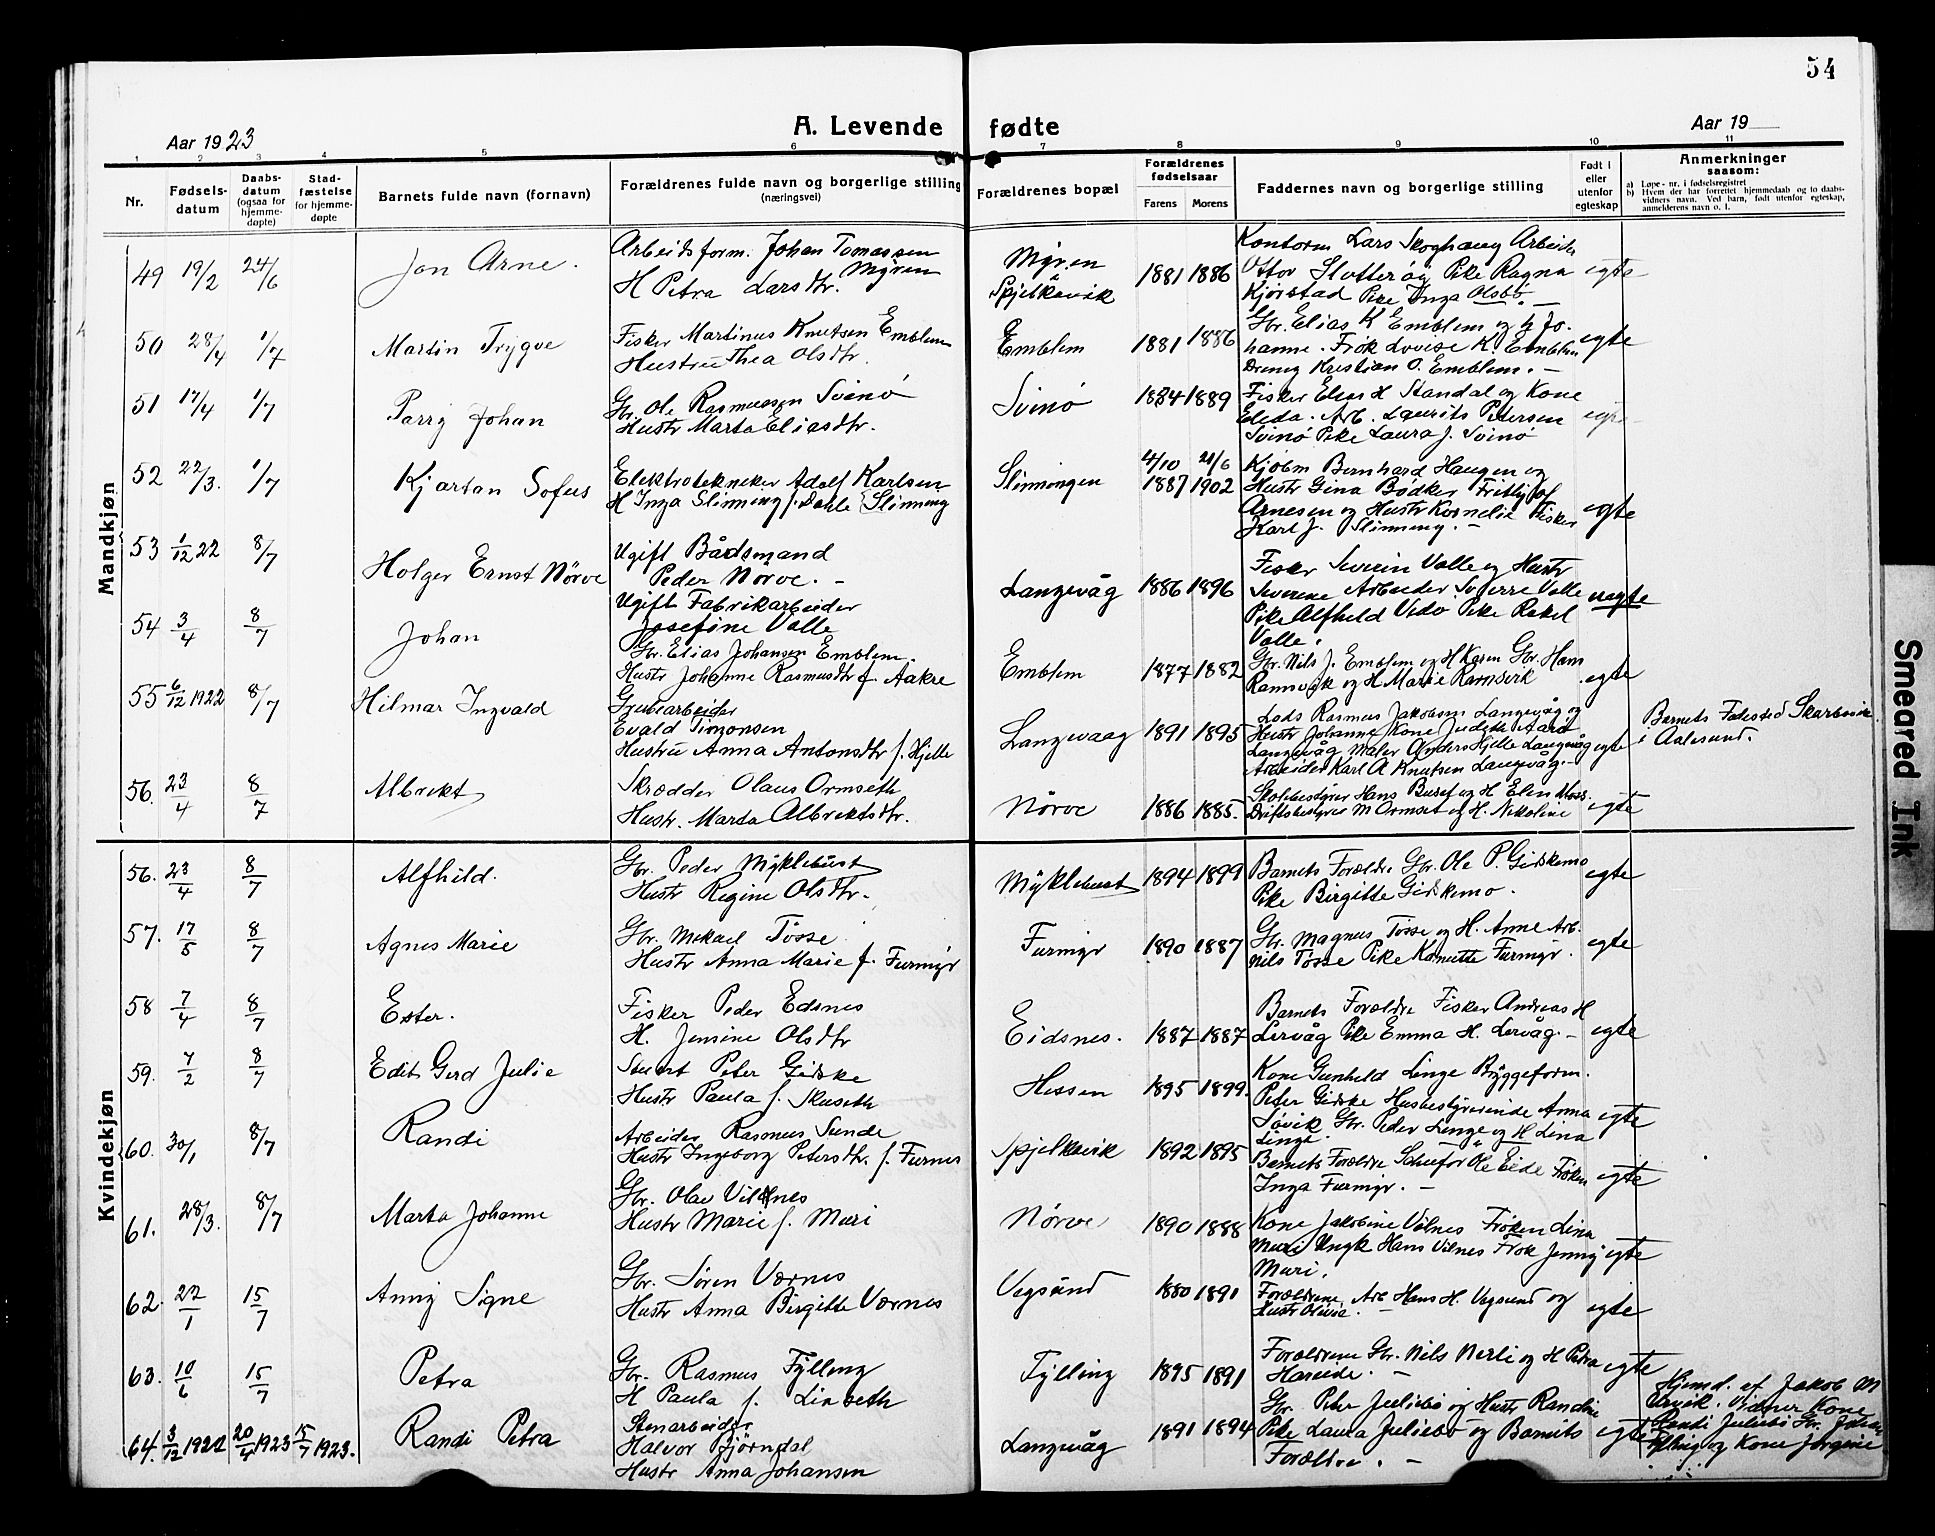 54
A. Levende fødte
Aar 1923
Aar 19
1 2 3 4 5 6 7 8 9 10 11
Nr.
Fødsels-datum
Daabs-datum (ogsaa for hjemme-døpte)
Stad-fæstelse for hjemme-døpte
Barnets fulde navn (fornavn)
Forældrenes fulde navn og borgerlige stilling (næringsvei)
Forældrenes bopæl
Forældrenes fødselsaar
Farens Morens
Faddernes navn og borgerlige stilling
Født i eller utenfor egteskap
Anmerkninger saasom:
a) Løpe-nr. i fødselsregistret
b) Hvem der har forrettet hjemmedaab og to daabs-vidners navn. Ved barn, født utenfor egteskap, anmelderens navn o. l.
Mandkjøn
49 19/2 24/6 Jon Arne.
Arbeidsform. Johan Tomassen Myren
H Petra Larsdtr.
Myren Spjelkavik 1881 1886
Kontorm Lars Skoghaug Arbeider
Ottor Slotterøy Pike Ragna
Kjørstad Pike Inga Olsbø. —
egte
50 28/4 1/7 Martin Trygve
Fisker Martinus Knutsen Emblem
Hustru Thea Olsdtr.
Emblem 1881 1886
Gbr. Elias K Emblem og h Jo-
hanne. Frøk Lovise K. Emblem
Dreng Kristian O. Emblem. —
egte
51 17/4 1/7 Parry Johan
Gbr. Ole Rasmussen Svinø
Hustr Marta Eliasdtr.
Svinø 1884 1889
Fisker Elias H Standal og Kone
Eleda. Arb. Laurits Petersen
Svinø Pike Laura J. Svinø
egte
52 22/3. 1/7 Kjartan Sofus
Elektrotekniker Adolf Karlsen
H Inga Slinning f. Dahle [Slinning
Slinningen 4/10 1887 21/6 1902
Kjøbm Bernhard Haugen og
Hustr Gina Bødker Frithjof
Arnesen og Hustr Kornelie Fisker
Karl J. Slinning. —
egte
53 1/12 22 8/7 Holger Ernst Nörve
Ugift Bådsmand
Peder Nörve. —
Ugift Fabrikarbeider
Josefine Valle
Langevåg 1886 1896
Fisker Severin Valle og Hustr
Severine Arbeider Sverre Valle
Pike Alfhild Vedø Pike Rakel
Valle.
uegte
54 3/4 8/7 Johan
Gbr. Elias Johansen Emblem.
Hustr Johanne Rasmusdtr f. Aakre
Emblem 1877 1882
Gbr. Nils J. Emblem og H Karen Gbr. Hans
Ramsvik og H Marie Ramsvik
egte
55 6/12 1922 8/7 Hilmar Ingvald
Grubearbeider
Evald Simonsen
Hustru Anna Antonsdtr f. Hjelle
Langevaag 1891 1895
Lods Rasmus Jakobsen Langevåg og
Hustr Johanne Kone Judeth Aarø
Langevåg Maler Anders Hjelle Langevåg
Arbeider Karl A Knutsen Langevåg. —
egte
Barnets Fødested Skarbøvik
i Aalesund.
56. 23/4 8/7 Albrekt
Skrædder Olaus Ormseth
Hustr. Marta Albrektsdtr.
Nörve 1886 1885.
Skolebestyrer Hans Buset og H Elen Moss.
Driftsbestyrer M Ormset og H. Nikoline
egte
Kvindekjøn
56. 23/4 8/7 Alfhild.
Gbr. Peder Myklebust
Hustr Regine Olsdtr.
Myklebust 1894 1899
Barnets Forældre Gbr. Ole P. Giskemo
Pike Birgitte Giskemo.
egte
57. 17/5 8/7 Agnes Marie
Gbr. Mikael Tösse
Hustr Anna Marie f. Furmyr
Furmyr 1890 1887
Gbr. Magnus Tösse og H. Anne Arb.
Nils Tösse Pike Kanutte Furmyr.
egte
58 7/4 8/7 Ester.
Fisker Peder Edsnes
H. Jensine Olsdtr
Eidsnes. 1887 1887
Barnets Forældre Fisker Andreas H
Lervåg Pike Emma H. Lervåg. —
egte
59. 7/2 8/7 Edit Gerd Julie
Peter Giske
Hustr Paula f. Skuseth
Hessen 1895 1899
Kone Gunhild Linge Byggeform.
Peter Giske Husbestyrerinde Anna
Søvik Gbr. Peder Linge og H Lina
Linge.
egte
60. 30/1 8/7 Randi
Arbeider Rasmus Sunde
Hustr Ingeborg Petersdtr. f. Furnes
Spjelkavik 1892 1895
Barnets Forældre Schufør Ole Eide Frøken
Inga Furmyr. —
egte
61. 28/3. 8/7 Marta Johanne
Gbr. Olav Vilnes
Hustr Marie f. Muri
Nörve 1890 1888
Kone Jakobine Vilnes Frøken Lina
Muri Ungk Hans Vilnes Frøk Jenny
Muri.
egte
62. 22/1 15/7 Anny Signe
Gbr. Søren Værnes
Hustr Anna Birgitte Værnes
Vegsund 1880 1891
Forældrene Arb Hans H. Vegsund og
Hustr Olivia. —
egte
63. 10/6 15/7 Petra
Gbr. Rasmus Fylling
H Paula f. Linseth
Fylling 1895 1891
Forældrene Gbr. Nils Nerli og H Petra
Hareide. —
egte
64. 3/12 1922 20/4 1923 15/7 1923. Randi Petra
Stenarbeider
Halvor Bjørndal,
Hustr Anna Johansen
Langevåg 1891 1894
Gbr. Peter Juliebø og Hustr Randine
Pike Laura Juliebø og Barnets
Forældre. —
egte
Hjemd. af Jakob M
Ervik. Vidner Kone
Randi Juliebø Gbr.
og Kone Jørgine
Smeared Ink